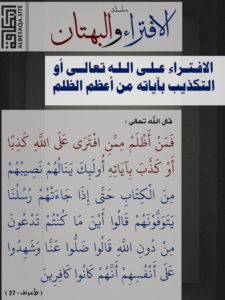 سلسلة
الافتراء والبهتان
ALBETAQA.SITE
الافتراء على الله تعالى أو
التكذيب بآياته من أعظم الظلم
قال الله تعالى :
فَمَنْ أَظْلَمُ مِمَّنِ افْتَرَى عَلَى اللَّهِ كَذِبًا
أَوْ كَذَّبَ بِآيَاتِهِ أُولَئِكَ يَنَالُهُمْ نَصِيبُهُمْ
مِنَ الْكِتَابِ حَتَّى إِذَا جَاءَتْهُمْ رُسُلُنَا
يَتَوَفَّوْنَهُمْ قَالُوا أَيْنَ مَا كُنْتُمْ تَدْعُونَ
مِنْ دُونِ اللَّهِ قَالُوا ضَلُّوا عَنَّا وَشَهِدُوا
عَلَى أَنْفُسِهِمْ أَنَّهُمْ كَانُوا كَافِرِينَ
( الأعراف : 37 )